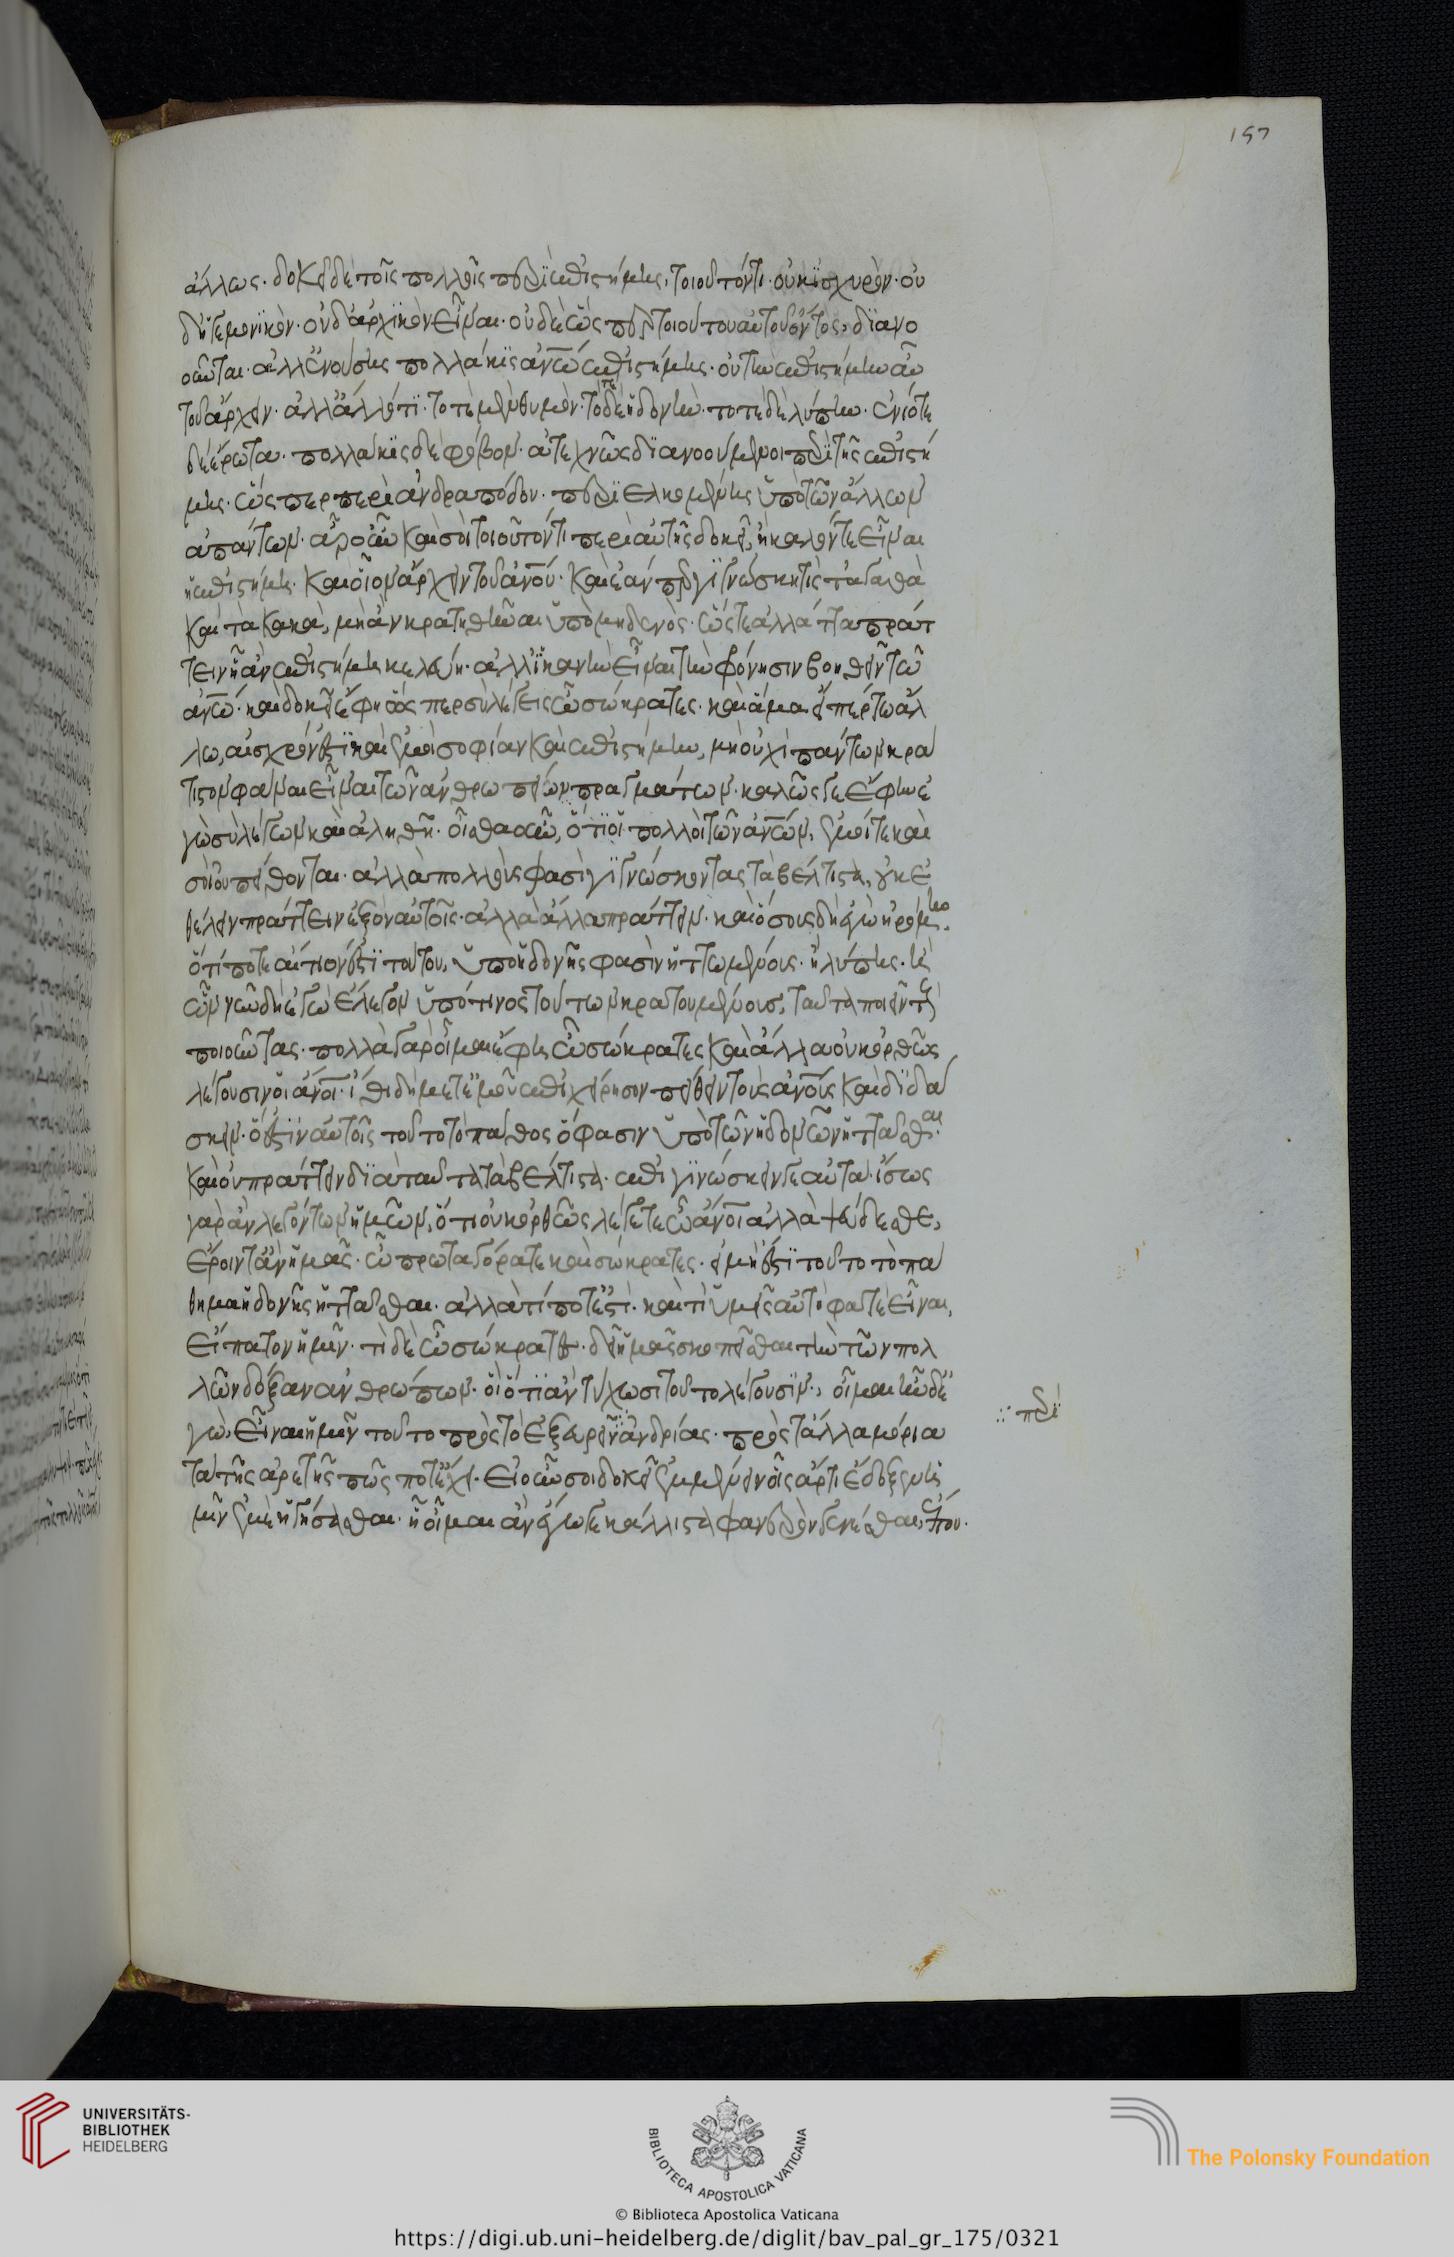 157
ἄλλως· δοκεῖ δὲ τοῖς πολλοῖς περὶ ἐπιστήμης, τοιοῦτόν τι· οὐκ ἰσχυρὸν· οὐ
δ' ἡγεμονικὸν· οὐδ' ἀρχικὸν εἶναι· οὐδὲ ὡς περὶ τοιούτου αὐτοῦ ὄντος, διανο
οῦνται· ἀλλ' ἐνούσης πολλάκις ἀνθρώπῳ ἐπιστήμης· οὐ τὴν ἐπιστήμην αὐ
τοῦ ἄρχειν· ἀλλ' ἄλλό τι· τοτὲ μὲν θυμὸν· τοτὲ δὲ ἡδονὴν· τοτὲ δὲ λύπην· ἐνίοτε
δὲ ἔρωτα· πολλάκις δὲ φόβον· ἀτεχνῶς διανοούμενοι περὶ τῆς ἐπιστή
μης· ὥσπερ περὶ ἀνδραπόδου· περιελκομένης ὑπὸ τῶν ἄλλων
ἁπάντων· ἆρ' οὖν καὶ σοὶ τοιοῦτόν τι περὶ αὐτῆς δοκεῖ, ἢ καλόν τε εἶναι
ἡ ἐπιστήμη· καὶ οἷον ἄρχειν τοῦ ἀνθρώπου· καὶ ἐάν περ γιγνώσκῃ τις τἀγαθὰ
καὶ τὰ κακὰ, μὴ ἂν κρατηθῆναι ὑπὸ μηδενὸς· ὥστε ἀλλ' ἄττα πράτ
τειν ἢ ἂν ἐπιστήμη κελεύῃ· ἀλλ' ἱκανὴν εἶναι τὴν φρόνησιν βοηθεῖν τῷ
ἀνθρώπῳ· καὶ δοκεῖ ἔφη ὥσπερ σὺ λέγεις ὦ σώκρατες· καὶ ἅμα εἴπερ τῳ ἄλ
λῳ, αἰσχρόν ἐστι καὶ ἐμοὶ σοφίαν καὶ ἐπιστήμην, μὴ οὐχὶ πάντων κρά
τιστον φάναι εἶναι τῶν ἀνθρωπείων πραγμάτων· καλῶς γε ἔφην ἐ
γὼ σὺ λέγων καὶ ἀληθῆ· οἶσθα οὖν, ὅτι οἱ πολλοὶ τῶν ἀνθρώπων, ἐμοί τε καὶ
σοὶ οὐ πείθονται· ἀλλὰ πολλοὺς φασὶ γιγνώσκοντας τὰ βέλτιστα, οὐκ ἐ
θέλειν πράττειν ἐξὸν αὐτοῖς· ἀλλὰ ἄλλα πράττειν· καὶ ὅσους δὴ ἐγὼ ἠρόμην
ὅτί ποτε αἴτιόν ἐστι τούτου, ὑπὸ ἡδονῆς φασὶν ἡττωμένους· ἢ λύπης· ἢ
ὧν νῦν δὴ ἐγὼ ἔλεγον ὑπό τινος τούτων κρατουμένους, ταῦτα ποιεῖν τοὺς
ποιοῦντας· πολλὰ γὰρ οἶμαι ἔφη ὦ σώκρατες καὶ ἄλλα οὐκ ὀρθῶς
λέγουσιν οἱ ἄνθρωποι· ἴθι δὴ μετ' ἐμοῦ ἐπιχείρησον πείθειν τοὺς ἀνθρώπους καὶ διδά
σκειν· ὅ ἐστιν αὐτοῖς τοῦτο τὸ πάθος ὅ φασιν ὑπὸ τῶν ἡδονῶν ἡττᾶσθαι
καὶ οὐ πράττειν διὰ ταῦτα τὰ βέλτιστα· ἐπεὶ γινώσκειν γε αὐτά· ἴσως
γὰρ ἂν λεγόντων ἡμῶν, ὅτι οὐκ ὀρθῶς λέγετε ὦ ἄνθρωποι ἀλλὰ ψεύδεσθε,
ἔροιντ' ἂν ἡμᾶς· ὦ πρωταγόρα τε καὶ σώκρατες· εἰ μή ἐστι τοῦτο τὸ πά
θημα ἡδονῆς ἡττᾶσθαι· ἀλλὰ τί ποτ' ἐστί· καὶ τί ὑμεῖς αὐτό φατε εἶναι,
εἴπατον ἡμῖν· τί δὲ ὦ σώκρατες· δεῖ ἡμᾶς σκοπεῖσθαι τὴν τῶν πολ
λῶν δόξαν ἀνθρώπων· οἳ ὅτι ἂν τύχωσι τοῦτο λέγουσιν, οἶμαι ἦν δ' ἐ
γὼ, εἶναι ἡμῖν τοῦτο πρὸς τὸ ἐξευρεῖν ἀνδρίας· πρὸς τἆλλα μόρια
τὰ τῆς ἀρετῆς πῶς ποτ' ἔχει· εἰ οὖν σοι δοκεῖ ἐμμένειν οἷς ἄρτι ἔδοξεν ἡ
μῖν ἐμὲ ἡγήσασθαι· ᾗ οἶμαι ἂν ἔγωγε κάλλιστα φανερὸν γενέσθαι, ἕπου·
∴ περὶ
UNIVERSITÄTS-
BIBLIOTHEK
HEIDELBERG
BIBLIOTECA APOSTOLICA VATICANA
The Polonsky Foundation
© Biblioteca Apostolica Vaticana
https://digi.ub.uni-heidelberg.de/diglit/bav_pal_gr_175/0321